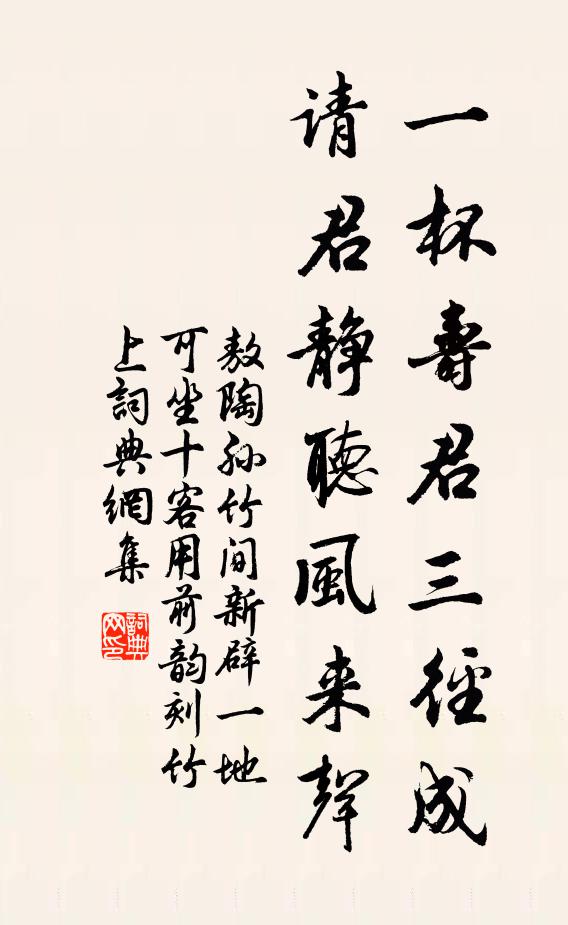 一杯壽君三徑成
请君静聽風来聲
敖陶孙竹间新辟一地
可坐十客用前韵刻竹
上詞典網集
詞典网印